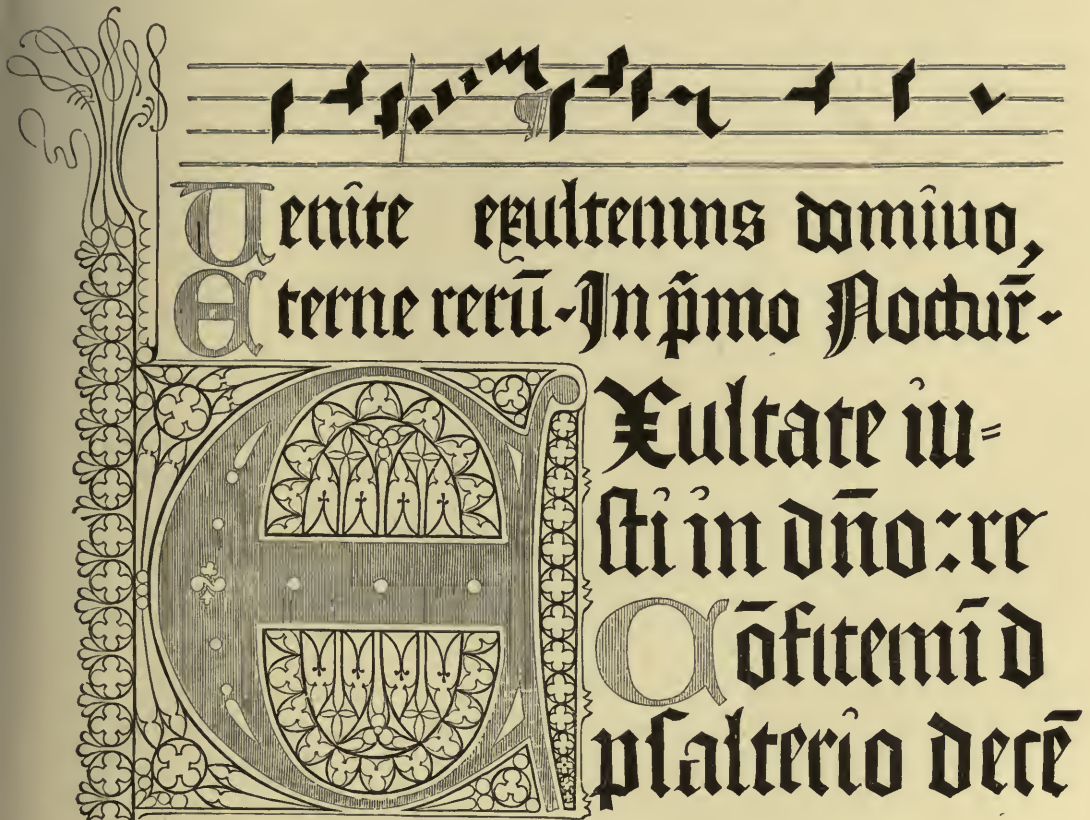 Uenite exultemus domino,
Eterne rerū. In p̄mo Noctur̄.
EXultate iu=
ſti in dn̄o: re
Cōfitemī d
pſalterio decē